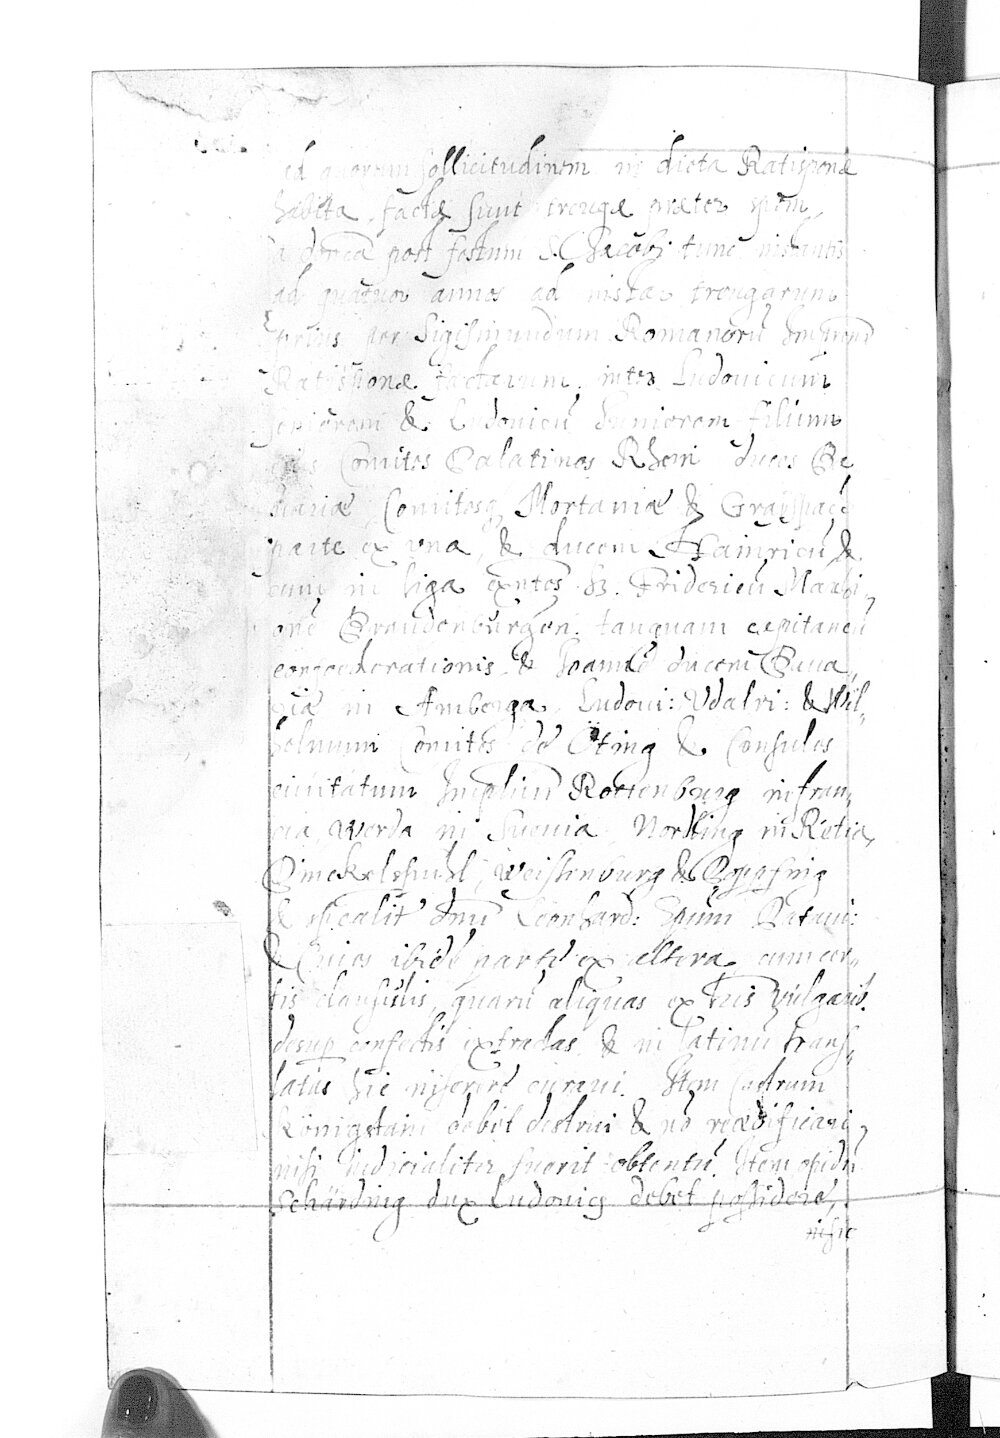 ad quorum sollicitudinem in dieta Ratisponæ
habita, factæ sunt treugæ præter spem,
a die post festum S. Jacobi tunc instantis
ad quatuor annos ad instar treugarum
prius per Sigismundum Romanorū
Ratisponæ factarum, inter Ludovicum
seniorem & Ludovicū Juniorem filium
eius Comites Palatinos Rheni duces Ba
variæ Comitesq Mortaniæ & Grayspach
parte ex una, & ducem Hainricū &
cum in liga exntes s. Fridericū Marchi,
onē Brandenburgen. tanquam capitaneū
confoederationis, & Joannē ducem Bava,
riæ in Amberga, Ludovi: Udalri: & Wil,,
helmum Comites de Öting & Consules
civitatum Imperialium Rottenburg in fran,,
cia, Werda in Suevia, Nördling in Retia,
Dinckelspuhl, Weissenburg & Bopfing
& specalit dnū Leonhard: Epum Patavi:
& Cives ibidē parte ex altera, cum cer,,
tis clausulis, quarū aliquas ex lris vulgarib.
desup confectis extractas, & in latinū trans,,
latas hic inserere curavi. Item castrum
Königstain debet destrui & nō reædificari,
nisi Judicialiter fuerit obtentū. Item opidū
Schärding dux Ludovicq debet possidere,